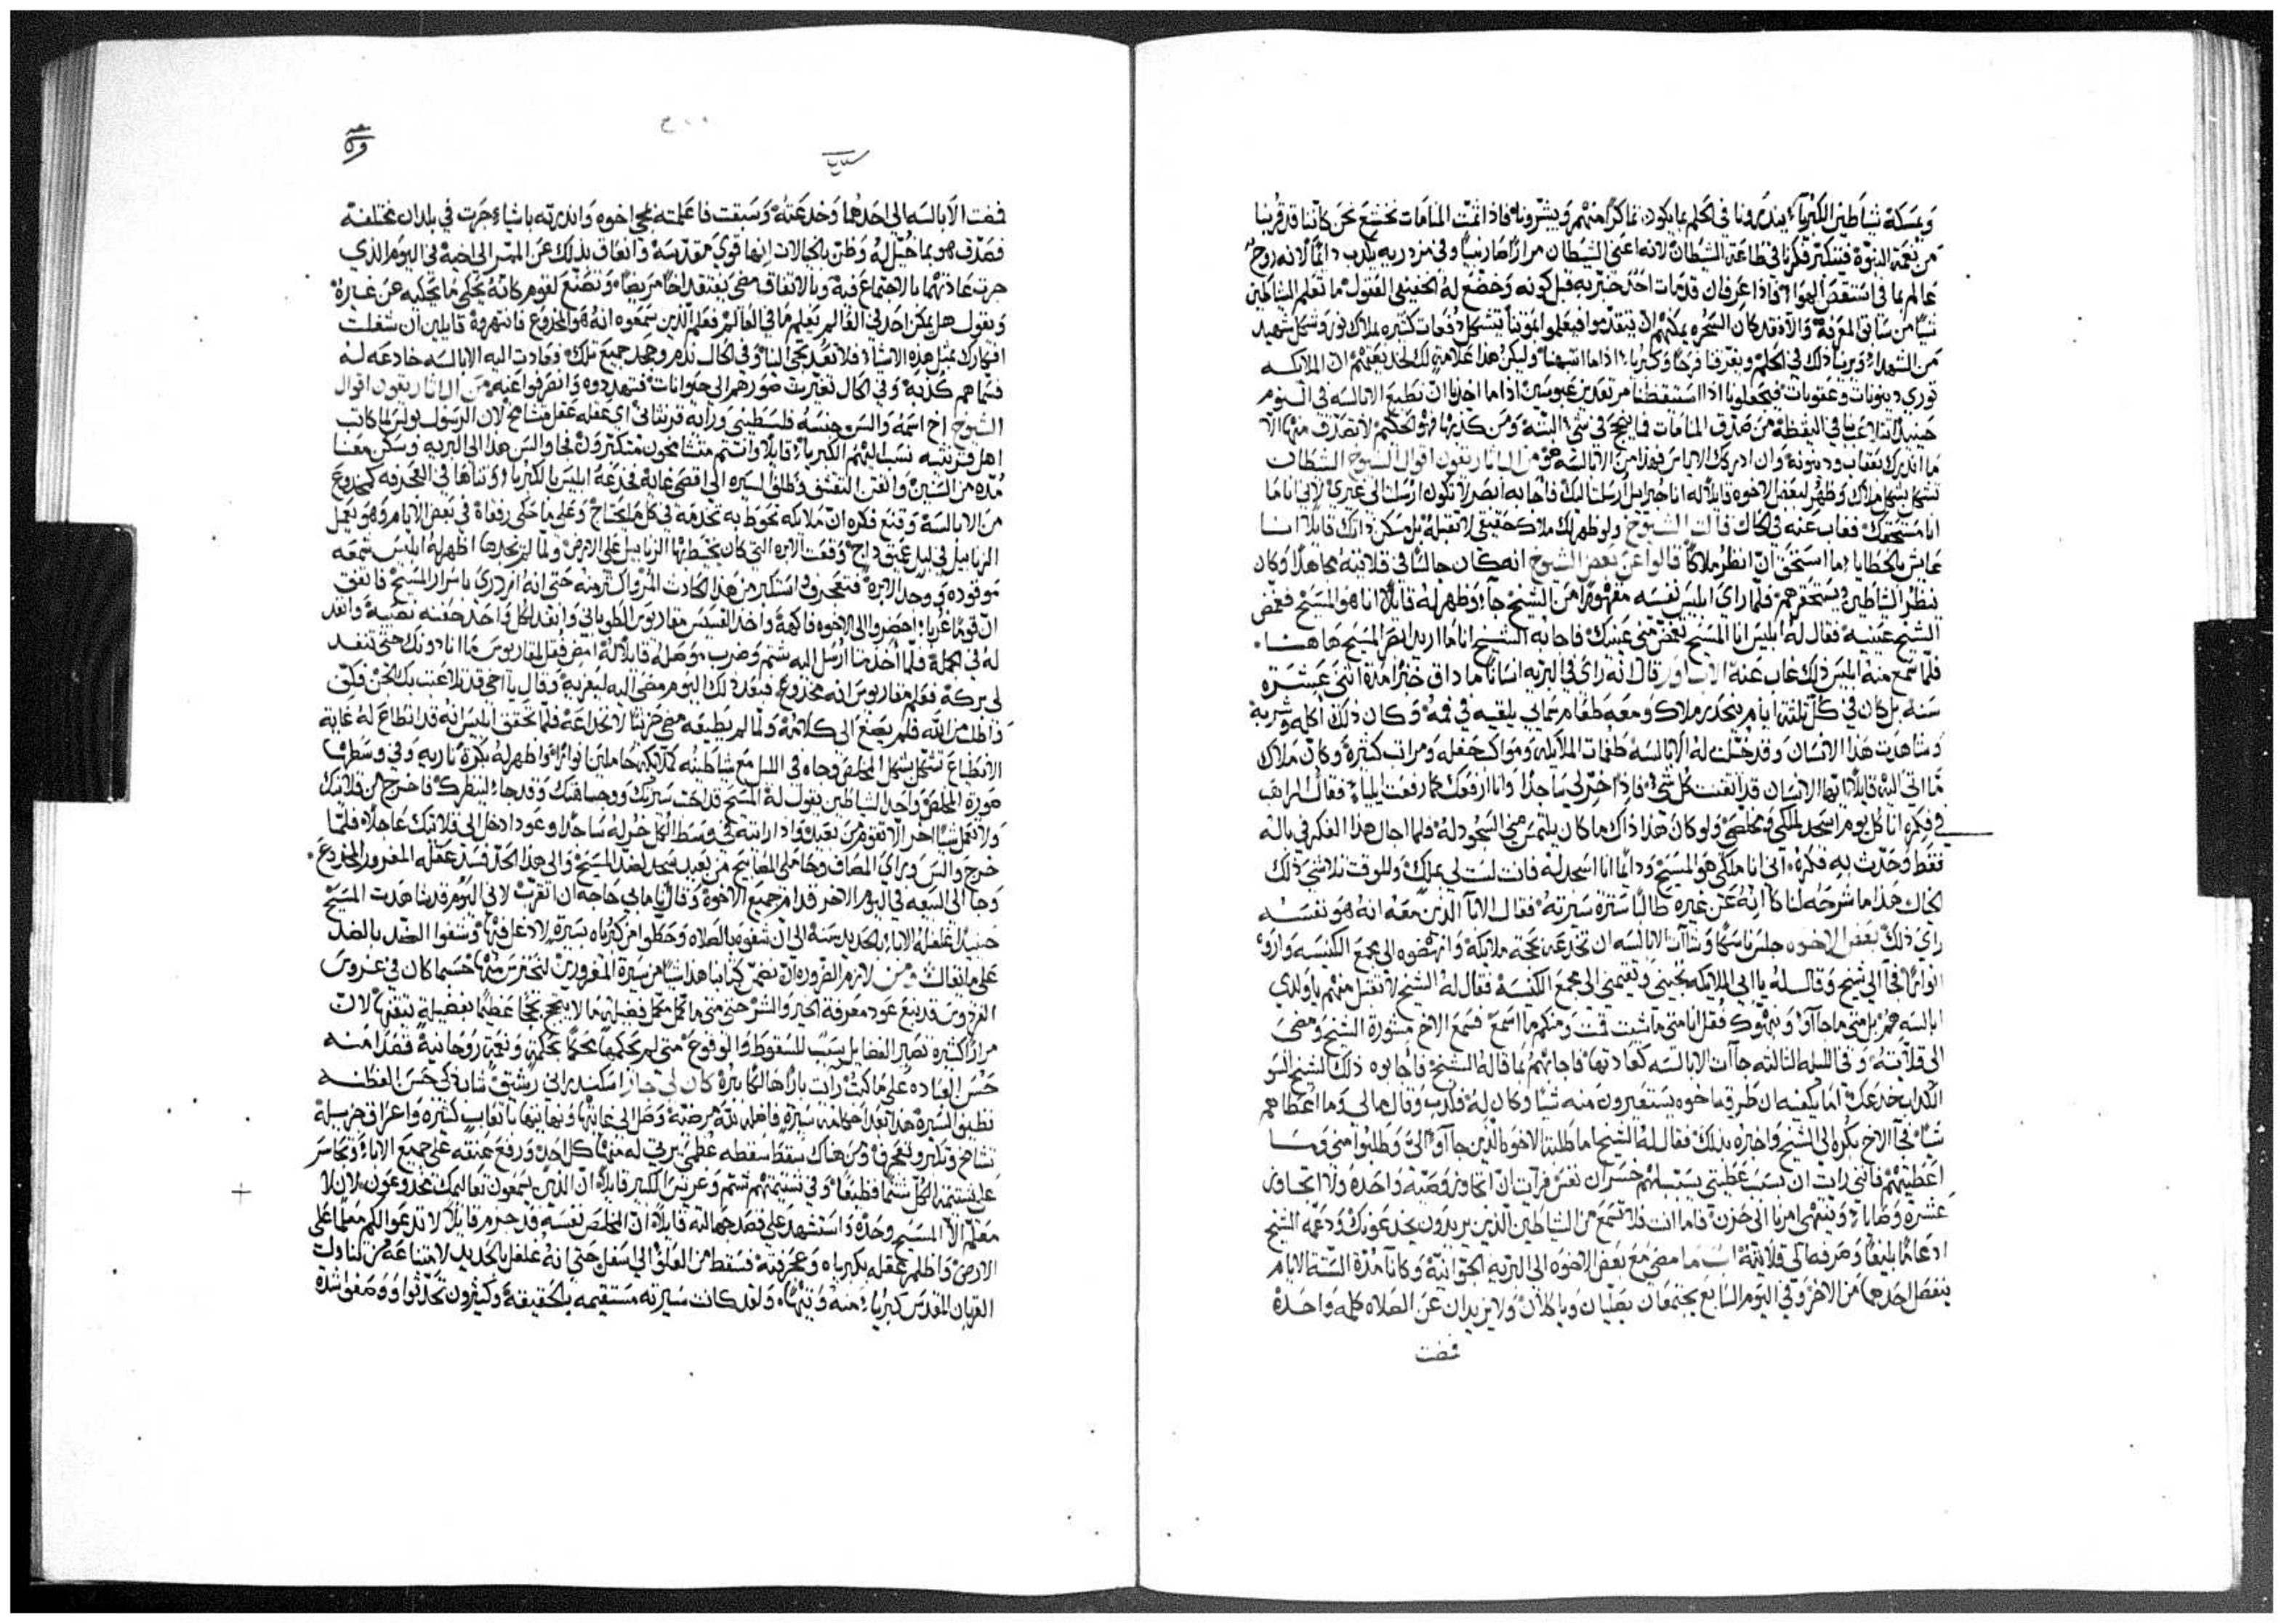 وتمسكة شياطين الكبرياء ينذرونا في الحلم بما يكون نماكرًا منهم ويبشرونا فاذا تمت المنامات نخشع نحن كاننا قد قربنا
من نعمة النبوة فتتكبر فكرنا في طاعة الشيطان لانه اعني الشيطان مرارًا صار نبيًا وفي مزدريه يكذب دائمًا لانه روح
من الشهداء ويرينا ذلك في الحلم ويغرقنا فرحًا وكبرياء اذا ما انتبهنا وليكن هذا علامة لك
توري دينونات وعقوبات فيجعلونا اذا استيقظنا مرتعدين عبوسين اذا ما اخذنا ان نطيع الابالسه في النوم
حينيذ في اليقظة من صدق المنامات فما ينجح في شي البتة ومن كذبها فهو الحكيم لا تصدق منها الا
ما انذرك بعقاب ودينونة وان ادركك الاياس فهذا من الابالسه هو من الابا ريعون اقوال الشيوخ الشيطان
تشكل بشكل ملاك وظهر لبعض الاخوه قايلًا له انا جبراييل ارسلت اليك فاجابه ابصر لا تكون ارسلت الى غيري لاني انا ما
انا مستحقك فغاب عنه في الحال قالت الشيوخ ولو ظهر لك ملاك حقيقي لا تقبله بل مسكن ذاتك قايلًا انا
عايش بالخطايا وما استحق ان انظر ملاكًا قالوا عن بعض الشيوخ انه كان جالسًا في قلايته مجاهدًا وكان
ينظر الشياطين ويستحقرهم فلما راى ابليس نفسه مقهورًا من الشيخ جاء وظهر له قايلًا انا هو المسيح فغمض
الشيخ عينيه فقال له ابليس انا المسيح تغمض عينيك فاجابه الشيخ انا ما اريد ابصر المسيح هاهنا
فلما سمع منه ابليس ذلك غاب عنه قال انه راى في البريه انسانًا ما ذاق خبزًا مدة اثنى عشرة
سنه بل كان في كل ثلثة ايام ينحدر ملاك ومعه طعام سمايي يلقيه في فمه وكان ذلك اكله وشربة
وشاهدت هذا الانسان وقد خيلت له الابالسة طغمات الملايكه ومواكب حفله ومراتب كثيرة وكان ملاك
ما اتى اليه قايلًا ايها الانسان قد اتقنت كل شي فاذًا خر لي ساجدًا وانا ارفعك كما رفعت ايلياء فقال الراهب
في فكره انا كل يوم اسجد لملكي ومخلصي ولو كان هذا ذاك ما كان يلتمس مني السجود له فلما اجال هذا الفكر في باله
فقط وحدث به فكره اني انا ملكي هو المسيح ودايمًا انا اسجد له فانت لست لي بملك وللوقت تلاشى ذلك
الخال هذا ما شرحه لنا كانه عن غيره طالبًا سترة سيرته فقال الابا الذين معه انه هو نفسه
راى ذلك بعض الاخوه جلس ناسكًا وشآت الابالسه ان تخدعه بحجة ملايكة وانهضوه الى مجمع الكنيسه واروه
انوارًا فجا الى شيخ وقال له يا ابي الملايكه تجيني وتقيمني الى مجمع الكنيسه فقال له الشيخ لا تقبل منهم يا ولدي
ابالسة هم بل متى ما جاآو وينهوك فقل انا متى ما شيت قمت ومنكم ما اسمع فسمع الاخ مشورة الشيخ ومضى
الى قلايته وفي الليله الثالثة جآات الابالسه كعادتها فاجابهم بما قاله الشيخ فاجابوه ذلك الشيخ السو
الكداب خدعك اما يكفيه ان طرقه اخوه يستقرضون منه شيًا وكان له فكذب وقال ما لي وما اعطاهم
شيًا فجا الاخ بكره الى الشيخ واخبره بذلك فقال له الشيخ اما طلبة الاخوه الذين جاآو الي وطلبوا مني وما
اعطيتهم فانني رايت ان بسبب عطيتي يستبهلهم خسران نفس فرايت ان اتجاوز وصية واحده ولا اتجاوز
عشرة وصايا وينتهى امرنا الى حزن فاما انت فلا تسمع من الشياطين الذين يريدون يخدعوك ودعمه الشيخ
ادعامًا بليغًا وصرفه الى قلايته مضى مع بعض الاخوه الى البريه الجوانية وكانا مدة الستة الايام
ينفصل احدهما من الاخر وفي اليوم السابع يجتمعان يصليان وياكلان ولا يزيدان عن الصلاه كلمه واحدة
فمضت
فمضت الابالسه الى احدهما وخدعته وسبقت فاعلمته بمجي اخوه وانذرته باشياء جرت في بلدان مختلفة
فصدق هو بما خيل له وظن بالخيالات انها قوى مقدسة وانعاق بذلك عن الممر الى اخيه في اليوم الذي
جرت عادتهما بالاجتماع فيه وبالاتفاق مضى يفتقد اخًا مريضًا وتصنع لقوم كانه يحكي ما يحكيه عن غيره
ويقول هل يمكن احد في العالم يعلم ما في العالم فعلم الذين سمعوه انه هو المخدوع فانتهروه قايلين ان شغلت
افكارك بمثل هذه الاشياء فلا تعد تجي الينا وفي الحال ندم وجحد جميع تلك وعادت اليه الابالسه خادعه له
فسماهم كذبة وفي الحال تغيرت صورهم الى حيوانات فتهددوه وانصرفوا عنه من الابا ريعون اقوال
الشيوخ اخ اسمه والس جنسه فلسطيني ورايه قرنثاني اي عقله عقل متشامخ لان الرسول بولس لما كاتب
اهل قرنثيه نسب اليهم الكبرياء قايلًا وانتم متشامخون متكبرون فجا والس هذا الى البريه وسكن معنا
مدة من السنين واتقن التقشف وطلق السيره الى اقصى غايه فخدعه ابليس بالكبرياء
من الابالسة وقنع فكره ان ملايكه تحوط به تخدمه في كل ما يحتاج وعلى ما حكى رفقاة في بعض الايام وهو يعمل
الزنابيل في ليل عميق داج وقعت الابره التي كان يخيط بها الزنابيل على الارض ولما لم يجدها اظهر له ابليس شمعه
موقوده ووجد الابرة فتعجرف واستكبر من هذا الحادث المزور اكثر منه حتى انه ازدرى باسرار المسيح فاتفق
ان قومًا غربا احضروا الى الاخوه فاكهة واخذ القسيس مقاريوس الطوباني وانفد لكل واحد حفنه نصيبه وانفد
له في الجملة فلما اخذها المرسل اليه شتم وضرب موصله قايلًا له امض فقل لمقاريوس ما انا دونك حتى تنفد
لي بركة فعلم مقاريوس انه مخدوع فبعد ذلك اليوم مضى اليه ليعزيه وقال يا اخي قد تلاعبت بك الجن فكف
واطلب من الله فلم يصغ الى كلامه ولما لم يطيعه مضى حزينًا لانخداعه فلما تحقق ابليس انه قد انطاع له غاية
الانطياع تشكل بشكل المخلص وجاه في الليل مع شياطينه كملايكه حاملين انوارًا واظهر له بكرة ناريه وفي وسطها
صورة المخلص واحد الشياطين يقول له المسيح قد احب سيرتك ومصافتك وقد جاء لينظرك فاخرج من قلايتك
ولا تعمل شيًا اخر الا تقوم من بعيد واذا رايته في وسط الكل خر له ساجدًا وعود ادخل الى قلايتك عاجلًا فلما
خرج والس وراى المصاف وحاملي المصابيح من بعيد سجد لضد المسيح والى هذا الحد فسد عقله المغرور المخدوع
وجا الى البيعه في اليوم الاخر قدام جميع الاخوة وقال انا ما بي حاجه ان اتقرب لاني اليوم قد شاهدت المسيح
حينيذ اغلغله الابا بالحديد سنة الى ان شفوه بالصلاه وحطوا من كبرياه بسيرة لا دغل فيها وشفوا الضد بالضد
على ما يقال ومن لازم الضروره ان نضمن كتابنا هذا شيًا من سيرة المغرورين لنحترس منها حسبما كان في غروس
الفردوس قد ينبع عود معرفة الخير والشر حتى متى ما كمل مكمل فضيلة ما لا يبجح بجحًا عظيمًا بفضيلة يتقنها لان
مرارًا كثيرة تصير الفضايل سببًا للسقوط والوقوع متى لم نحكمها بحكمة ونية روحانية
معلم الا المسيح وحده واستشهد على قصد جهالته قايلًا ان المخلص نفسه قد جزم قايلًا لا تدعوا لكم معلمًا على
الارض واظلم بعقله بكبرياه وعجرفته فسقط من العلو الى سفل حتى انه غلغل بالحديد لامتناعه من تناولت
القربان المقدس كبرياء منه وتيهًا ولقد كانت سيرته مستقيمه بالحقيقة وكثيرون تحدثوا ووصفوا شدة